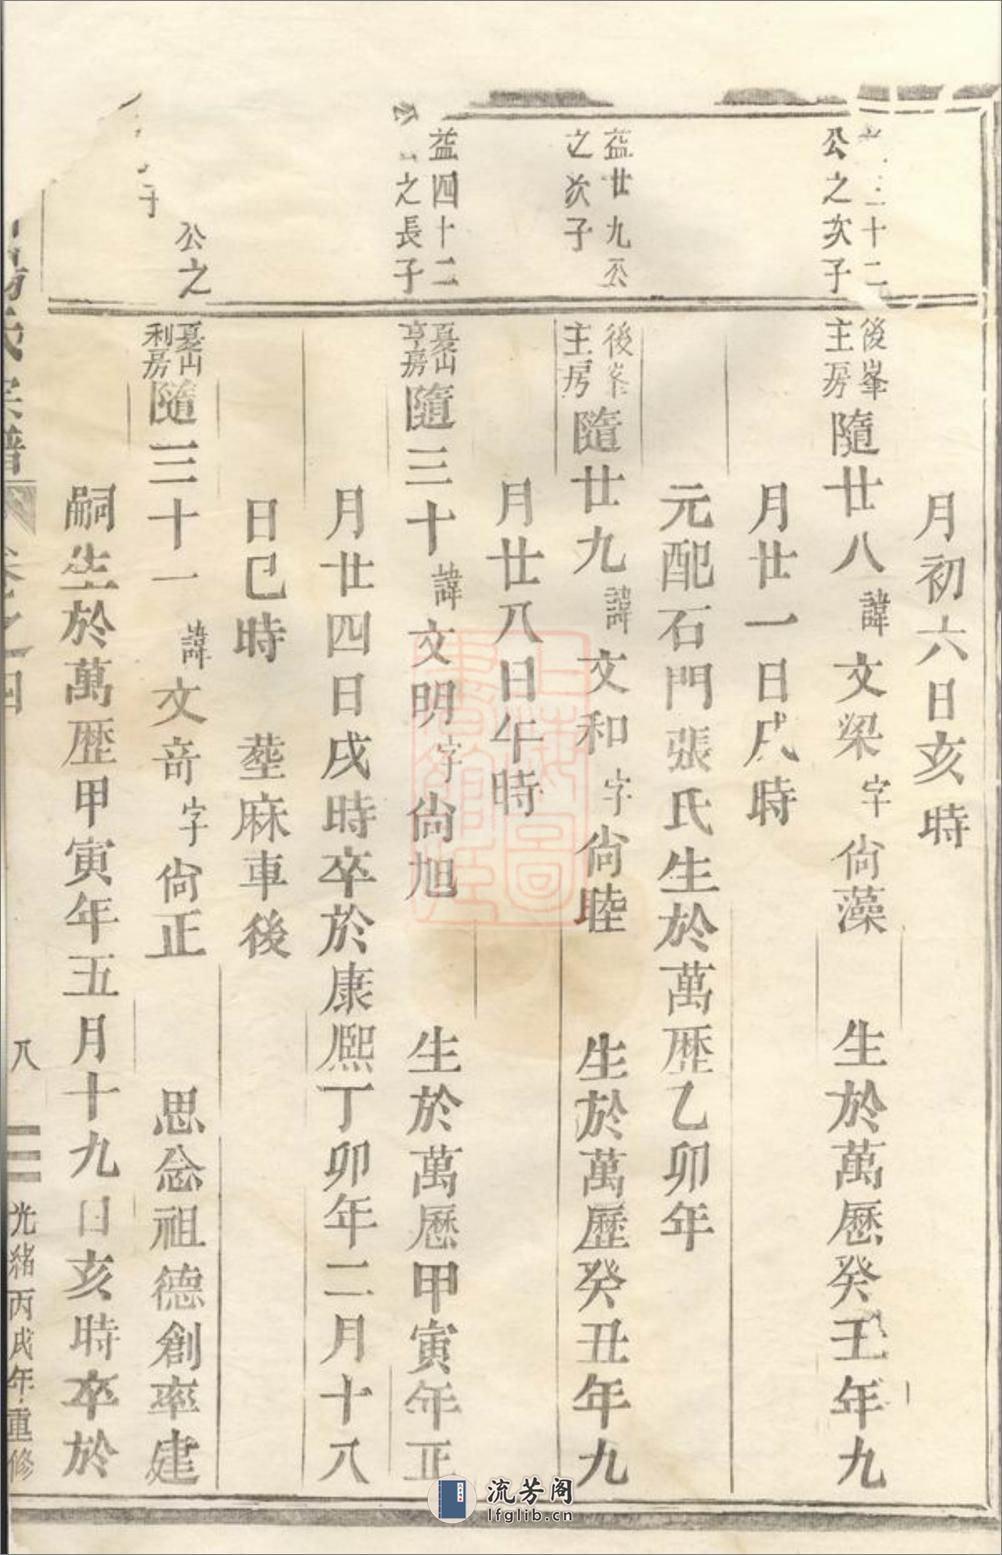 月初六日亥時
公之次子
後峯主房
隨廿八諱文梁字尙藻 生於萬歷癸丑年九
月廿一日戌時
元配石門張氏生於萬歷乙卯年
益廿九公之次子
後峯主房
隨廿九諱文和字尙睦 生於萬歷癸丑年九
月廿八日午時
益四十二公之長子
亨房
隨三十諱文明字尙旭 生於萬歷甲寅年正
月廿四日戌時卒於康熙丁卯年二月十八
日巳時 塟麻車後
公之
利房
隨三十一諱文竒字尙正 思念祖德創率建
嗣生於萬歷甲寅年五月十九日亥時卒於
氏宗譜 卷之四 八 光緒丙戌年重修
流芳阁
lfglib.cn